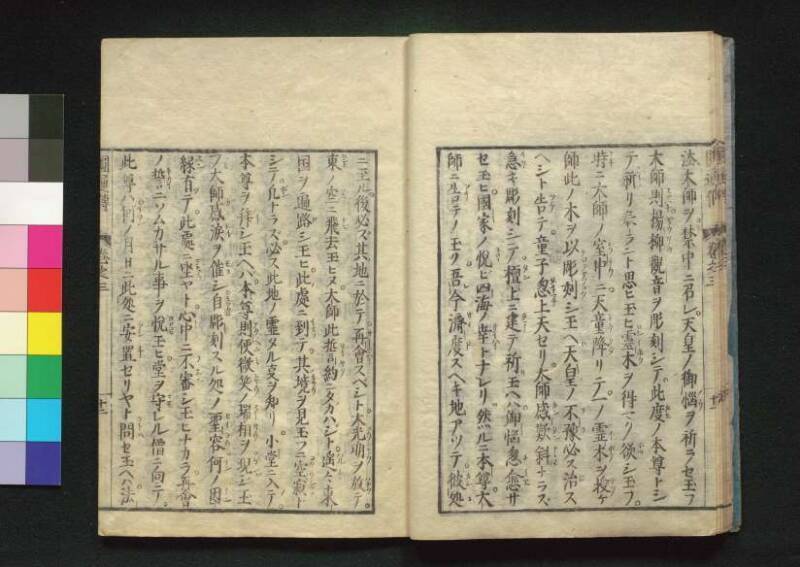 法大師ヲ禁中ニ召レ天皇ノ御悩ヲ祈ラセ玉フ
大師則楊柳觀音ヲ彫刻シテ此度ノ本尊トシ
テ祈リ奉ラント思ヒ玉ヒ霊木ヲ得ント欲シ玉フ
時ニ大師ノ室中ニ天童降リテ一ノ霊木ヲ授ケ
師此ノ木ヲ以彫刻シ玉ヘ天皇ノ不豫必ス治ス
ヘシト告テ童子忽上天セリ大師感歎斜ナラス
急キ彫刻シテ檀上ニ建テ祈玉ヘハ御悩忽ニ愈サ
セ玉ヒ國家ノ悦ヒ四海ノ幸トナレリ然ルニ本尊大
師ニ告テノ玉ク吾今濟度スヘキ地アツテ彼処
ニ至ル後必ス其地ニ於テ再會スベシト大光明ヲ放テ
東ノ空ニ飛去玉ヒヌ大師此誓約ニタカハシト遥々東
国ヲ遍路シ玉ヒ此處ニ到テ其境ヲ見玉フニ空寂ト
シテ凡トラス必ス此地ノ霊タル支ヲ知リ小堂ニ入テ
本尊ヲ拜シ玉ヘハ本尊則便微笑ノ瑞相ヲ現シ玉
フ大師感涙ヲ催シ自彫刻スル処ノ聖容何ノ因
縁有テ此處ニ坐ヤト心中ニ不審シ玉ヒナカラ再會
ノ誓ニソムカサル事ヲ悦玉ヒ堂ヲ守レル僧ニ向テ
此尊ハ何ノ月日ニ此処ニ安置セリヤト問セ玉ヘハ法